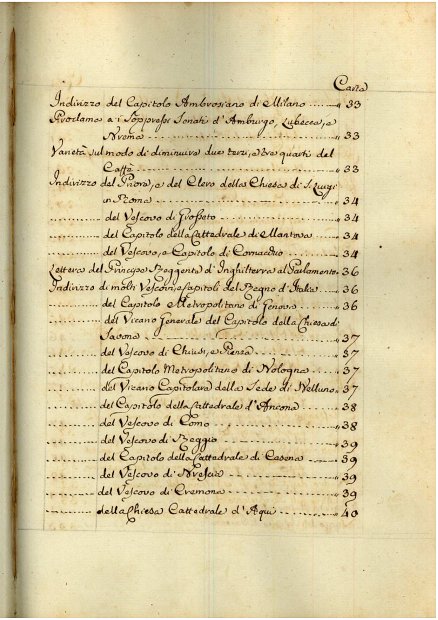 Carta
Indirizzo del Capitolo Ambrosiano di Milano ........ " 33
Proclama a i Soppressi Senati d'Amburgo, Lubecca, e
Brema ........ " 33
Varietà sul modo di diminuire due terzi, e tre quarti del
Caffè ........ " 33
Indirizzo del Priore, e del Clero della Chiesa di S. Luigi
in Roma ........ " 34
........ del Vescovo di Grosseto ........ " 34
........ del Capitolo della Cattedrale di Mantova ........ " 34
........ del Vescovo, e Capitolo di ........ " 34
Lettera del Principe Reggente d'Inghilterra al Parlamento " 36
Indirizzo di molti Vescovi, e Capitoli del Regno d'Italia " 36
........ del Capitolo Metropolitano di Genova ........ " 36
........ del Vicario Generale del Capitolo della Chiesa di
Savona ........ " 37
........ del Vescovo di Chiusi, e Pienza ........ " 37
........ del Capitolo Metropolitano di Bologna ........ " 37
........ del Vicario Capitolare della Sede di Belluno " 37
........ del Capitolo della Cattedrale d'Ancona ........ " 38
........ del Vescovo di Como ........ " 38
........ del Vescovo di Reggio ........ " 39
........ del Capitolo della Cattedrale di Cesena ........ " 39
........ del Vescovo di Brescia ........ " 39
........ del Vescovo di Cremona ........ " 39
........ della Chiesa Cattedrale d'Aqui ........ " 40